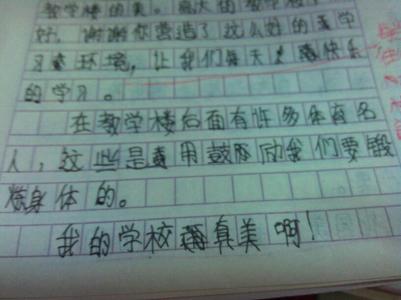 教学楼的美。高大的教学楼
好，谢谢你营造了这么好的美学
习环境，让我们每天愉快乐
的学习。
在教学楼后面有许多体育名
人，这些是用鼓励我们要锻
炼身体的。
我的学校真美啊！